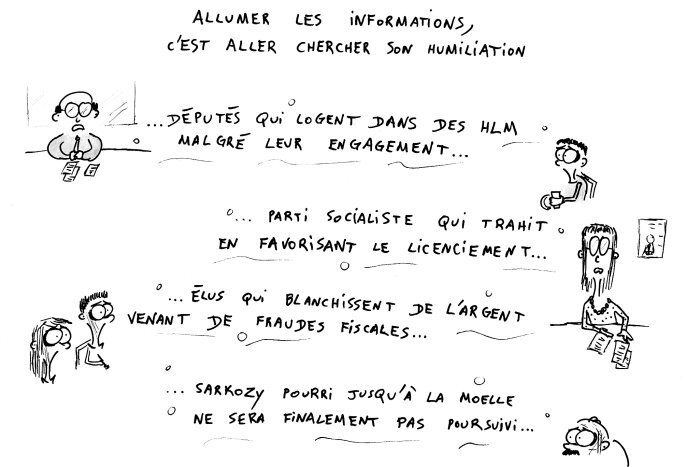 ALLUMER LES INFORMATIONS,
C'EST ALLER CHERCHER SON HUMILIATION
...DÉPUTÉS QUI LOGENT DANS DES HLM
MALGRÉ LEUR ENGAGEMENT...
... PARTI SOCIALISTE QUI TRAHIT
EN FAVORISANT LE LICENCIEMENT...
...ÉLUS QUI BLANCHISSENT DE L'ARGENT
VENANT DE FRAUDES FISCALES...
... SARKOZY POURRI JUSQU'À LA MOELLE
NE SERA FINALEMENT PAS POURSUIVI...